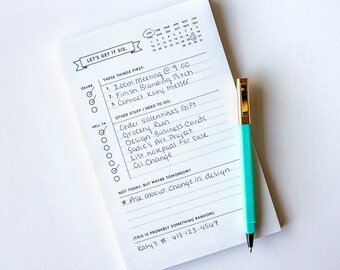 LET'S GET IT SIS.
ORDER
THESE THINGS FIRST:
1. Zoom meeting @ 9:00
2. Finish Branding Pitch
3. Contact Katy Messer
HELL YA
OTHER STUFF I NEED TO DO:
Order Valentines Gift
Grocery Run
Design Business Cards
Sadie's Art Project
List notepads For Sale
Oil Change
NOT TODAY, BUT MAYBE TOMORROW?
* Ask about change in design
(THIS IS PROBABLY SOMETHING RANDOM)
Katy's # 418-123-4567